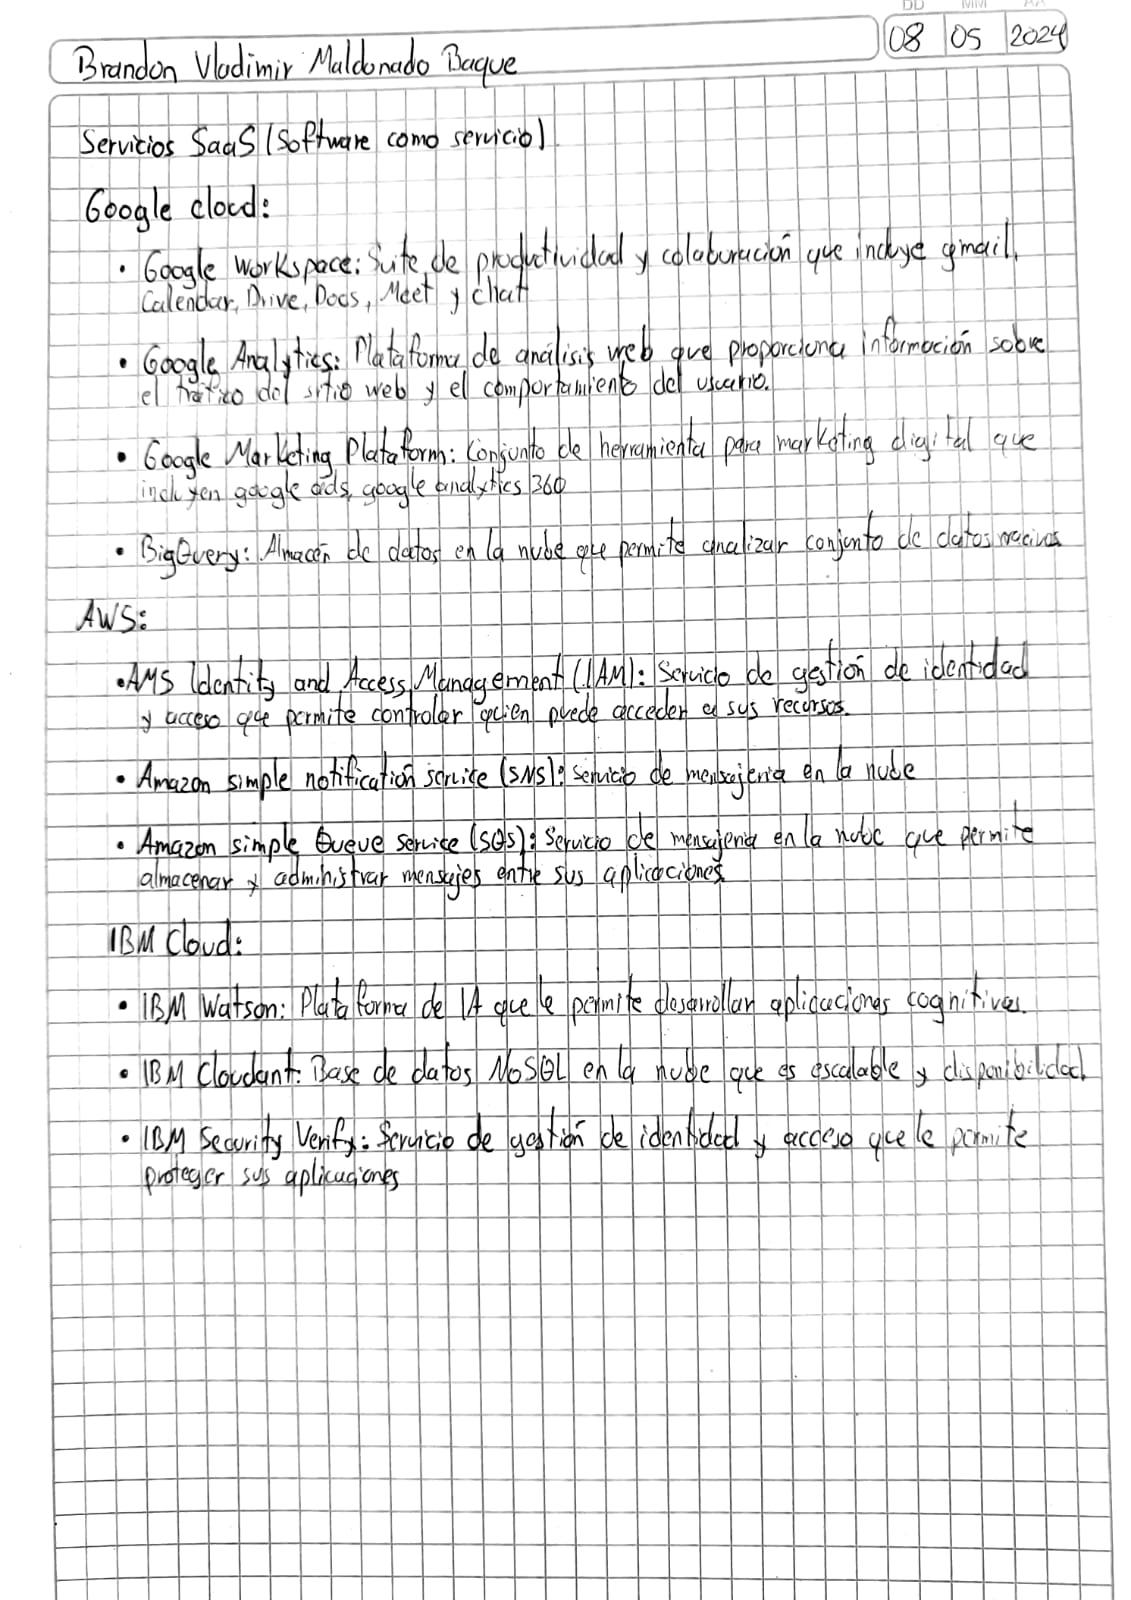 DD MM AA
Brandon Vladimir Maldonado Baque 08 05 2024
Servicios SaaS (Software como servicio)
Google cloud:
• Google Workspace: Suite de productividad y colaboración que incluye gmail,
Calendar, Drive, Docs, Meet y chat
• Google Analytics: Plataforma de análisis web que proporciona información sobre
el tráfico del sitio web y el comportamiento del usuario.
• Google Marketing Plataform: Conjunto de herramienta para marketing digital que
incluyen google ads, google analytics 360
• BigQuery: Almacén de datos en la nube que permite analizar conjunto de datos macivos
AWS:
• AMS Identity and Access Management (IAM): Servicio de gestión de identidad
y acceso que permite controlar quien puede acceder a sus recursos.
• Amazon simple notification service (SNS): servicio de mensajeria en la nube
• Amazon simple Queue Service (SQS): Servicio de mensajeria en la nube que permite
almacenar y administrar mensajes entre sus aplicaciones
IBM Cloud:
• IBM Watson: Plataforma de IA que le permite desarrollar aplicaciones cognitivas.
• IBM Cloudant: Base de datos NoSQL en la nube que es escalable y disponibilidad
• IBM Security Verify: Servicio de gestión de identidad y acceso que le permite
proteger sus aplicaciones